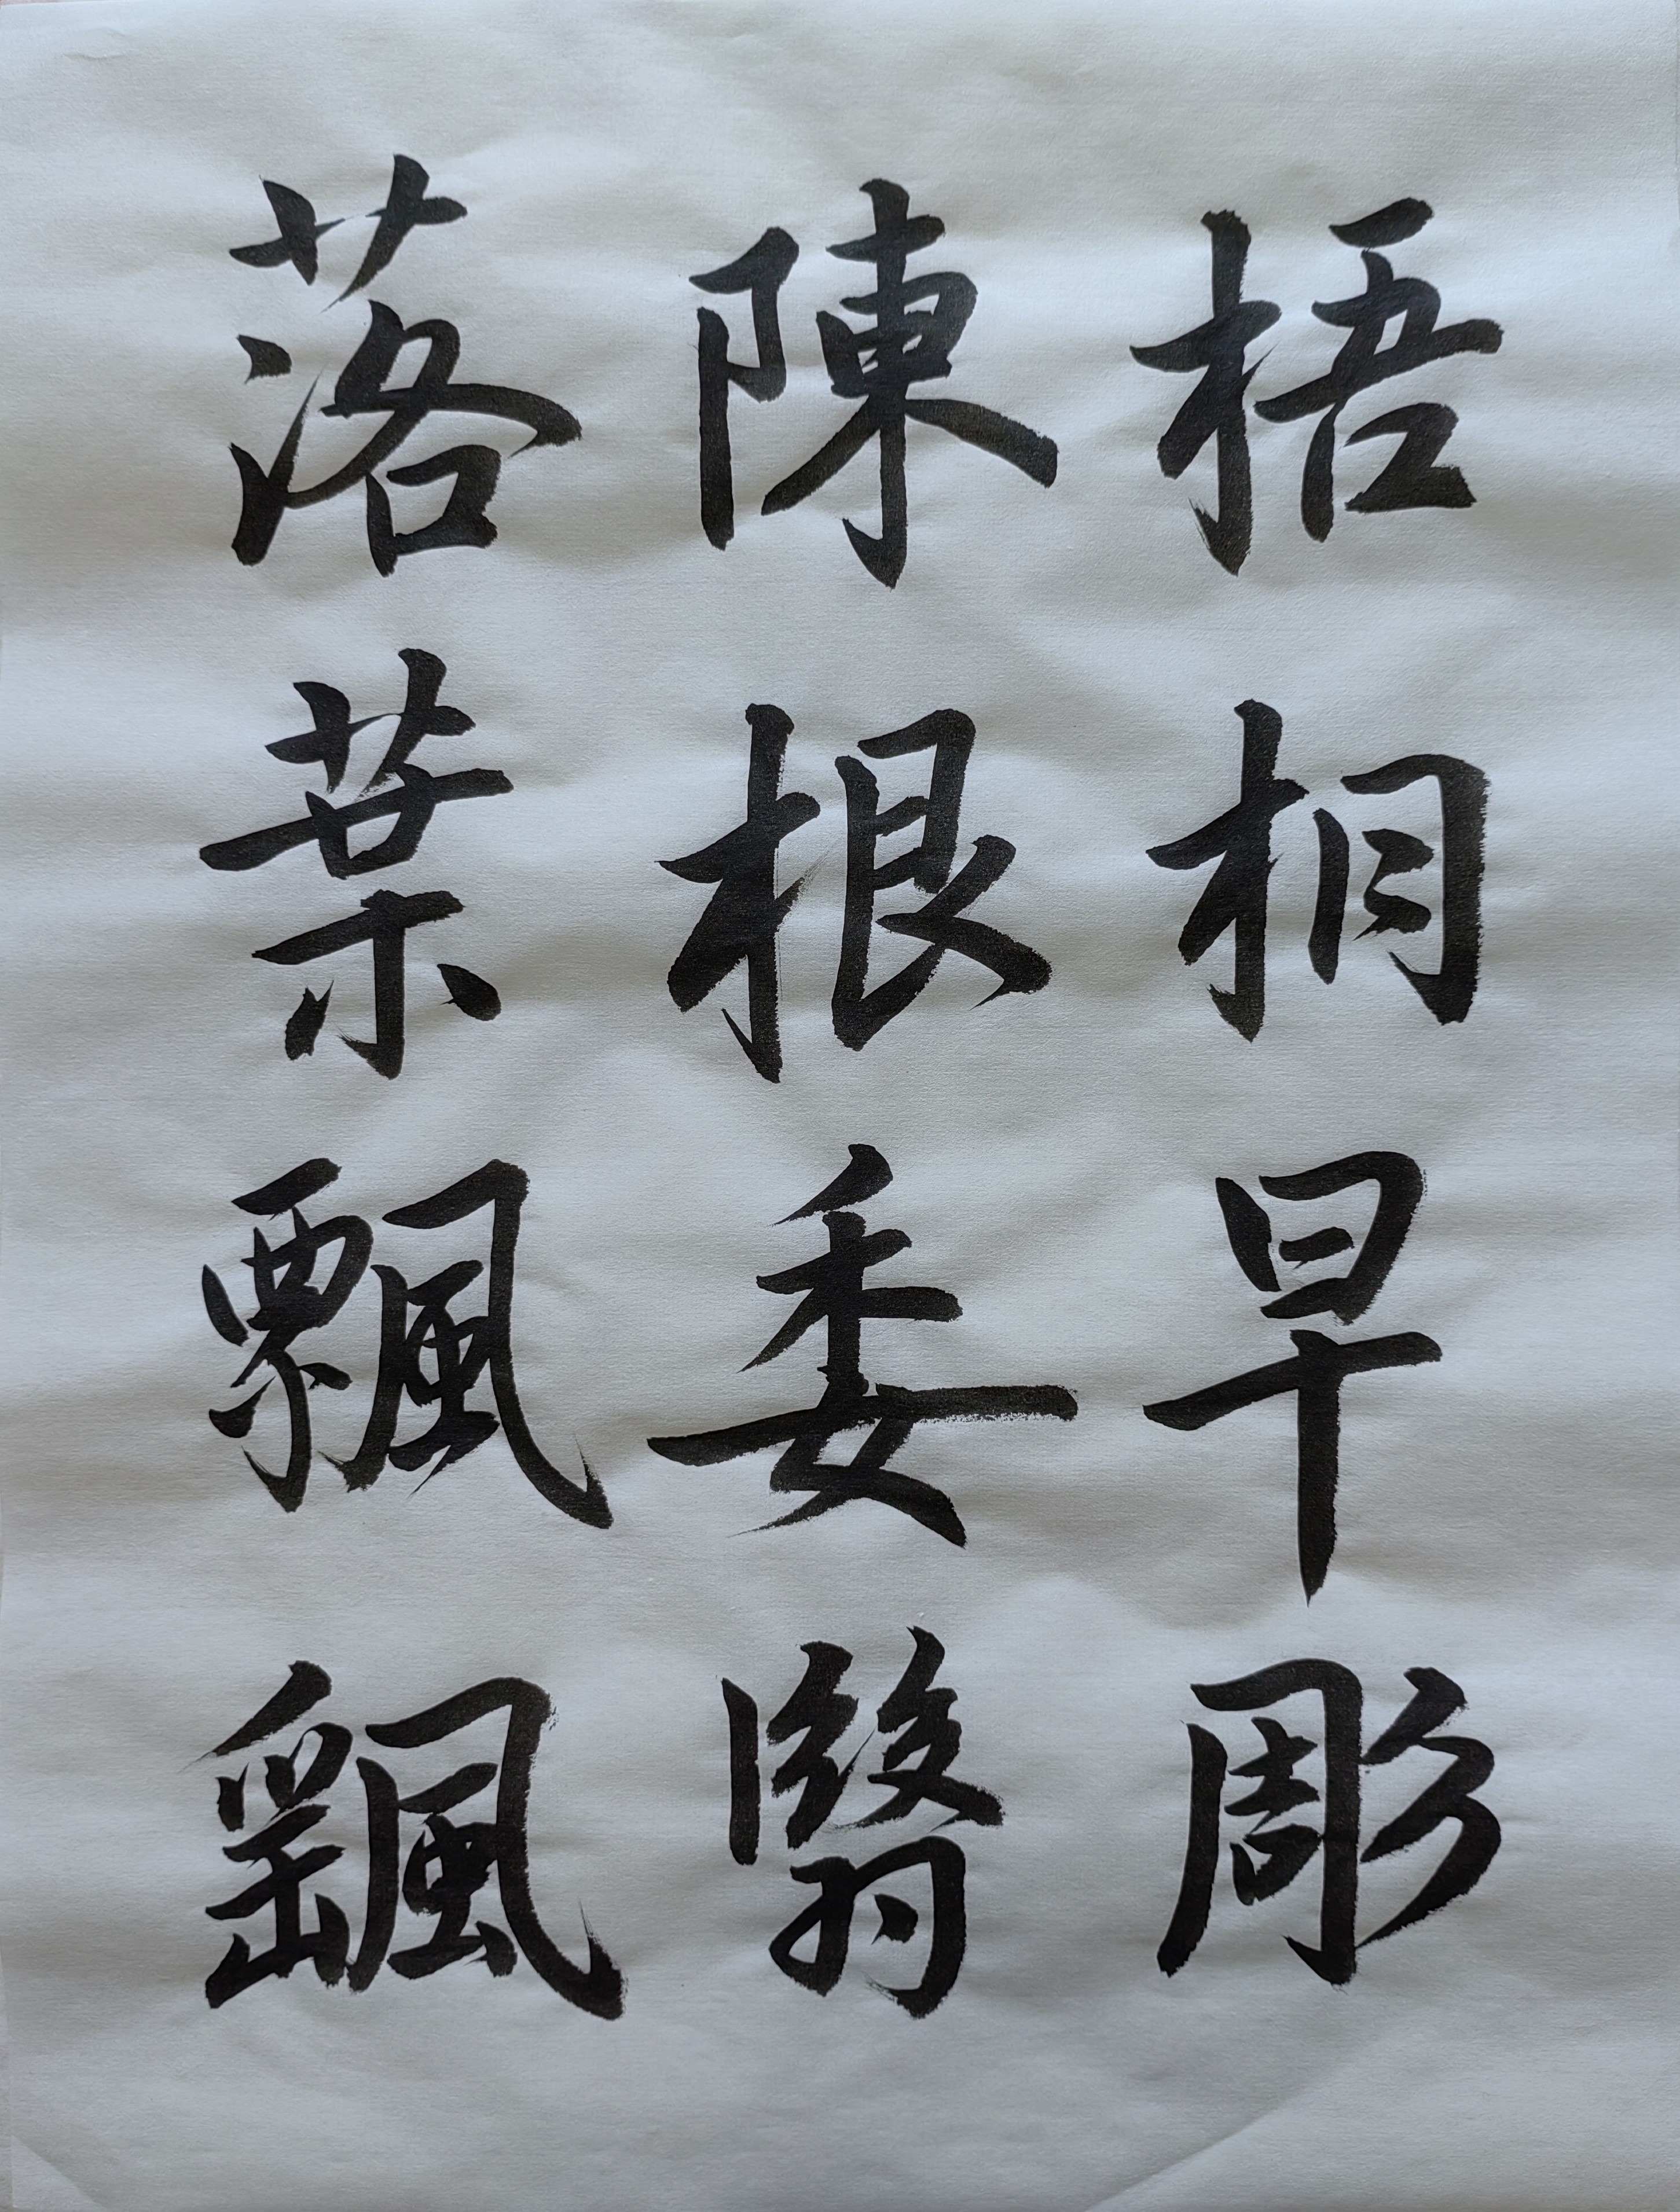 梧桐早彫
陳根委翳
落葉飄颻